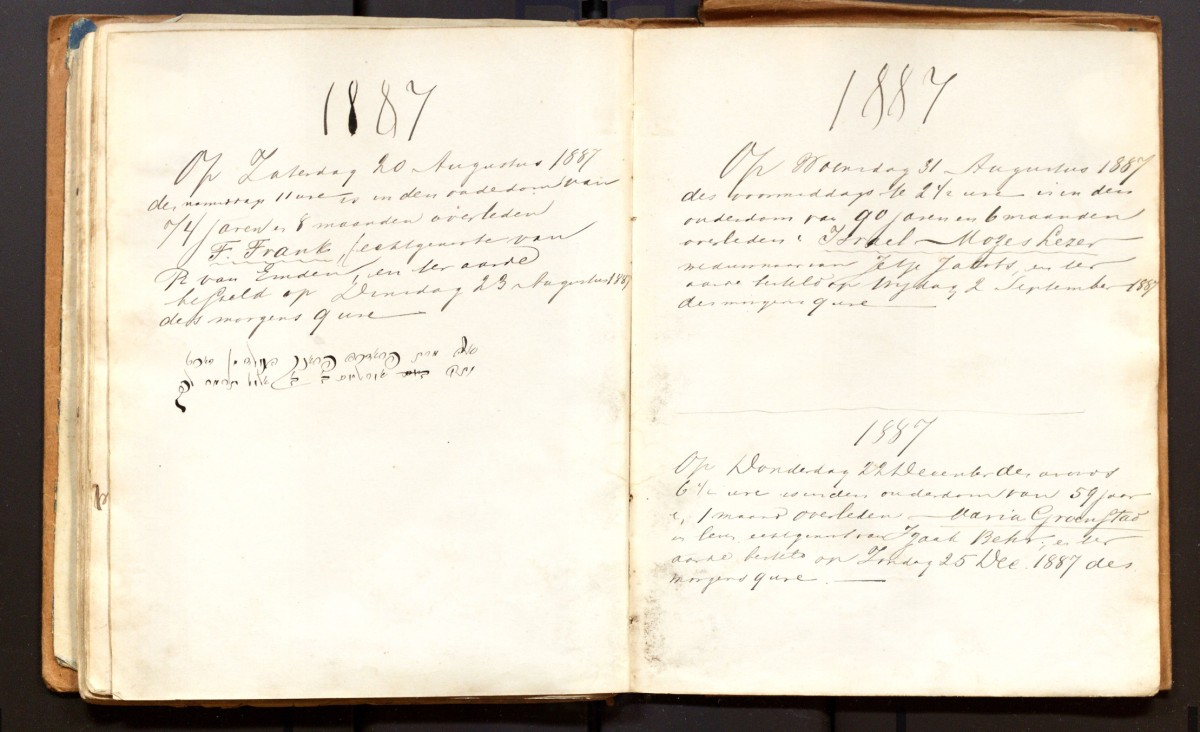 1887
Op Zaterdag 20 Augustus 1887
des namiddags 11 ure is in den ouderdom van
74 jaren en 8 maanden overleden
F. Frank, echtgenoote van
R van Emden, en ter aarde
besteld op Dinsdag 23 Augustus 1887
des morgens 9 ure
1887
Op Woensdag 31 Augustus 1887
des voormiddags te 2½ ure is in den
ouderdom van 90 jaren en 6 maanden
overleden Israel Mozes Lezer
weduwnaar van Jetje Jacobs, en ter
aarde besteld op Vrijdag 2 September 1887
des morgens 9 ure
1887
Op Donderdag 22 December des avonds
6½ ure is in den ouderdom van 59 jaar
en 1 maand overleden Maria Groenstad
in leven echtgenoot van Izaak Behr, en ter
aarde besteld op Zondag 25 Dec. 1887 des
morgens 9 ure.